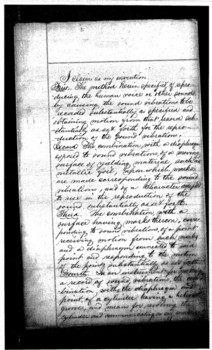 I claim as my invention
First. The method herein specified of repro-
ducing the human voice or other sounds
by causing the sound vibrations to be
recorded substantially as specified and
obtaining motion from that record sub-
stantially as set forth for the repro-
duction of the sound vibrations.
Second The combination with a diaphragm
exposed to sound vibrations of a moving
surface of yielding material such as
metallic foil, upon which marks
are made corresponding to the sound
vibrations, and of a character
to use in the reproduction of the
sound substantially as set forth
Third. The combination with a
surface having marks thereon, corres-
ponding to sound vibrations of a point
receiving motion from such marks
and a diaphragm connected to said
point and responding to the motion
of the point substantially as set forth
Fourth. In an instrument for making
a record of sound vibrations, the com-
bination with the diaphragm and
point of a cylinder having a helical
groove, and means for revolving the
cylinder and